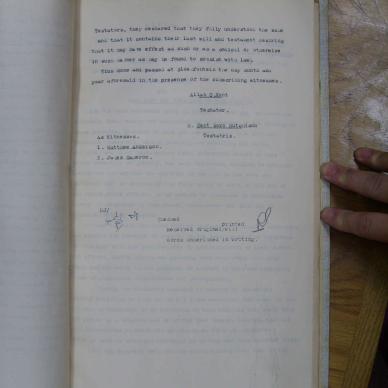 Testators, they declared that they fully understood the same
and that it contains their last will and testament desiring
that it may have effect as such or as a codicil or otherwise
in such manner as may be found to consist with law.
Thus done and passed at the day month and
year aforesaid in the presence of the subscribing witnesses.
Allan
Testator.
As Witnesses.
Testatrix.
1. Matthew
2. James Cameron.
printed
Received original will
words underlined in writing.